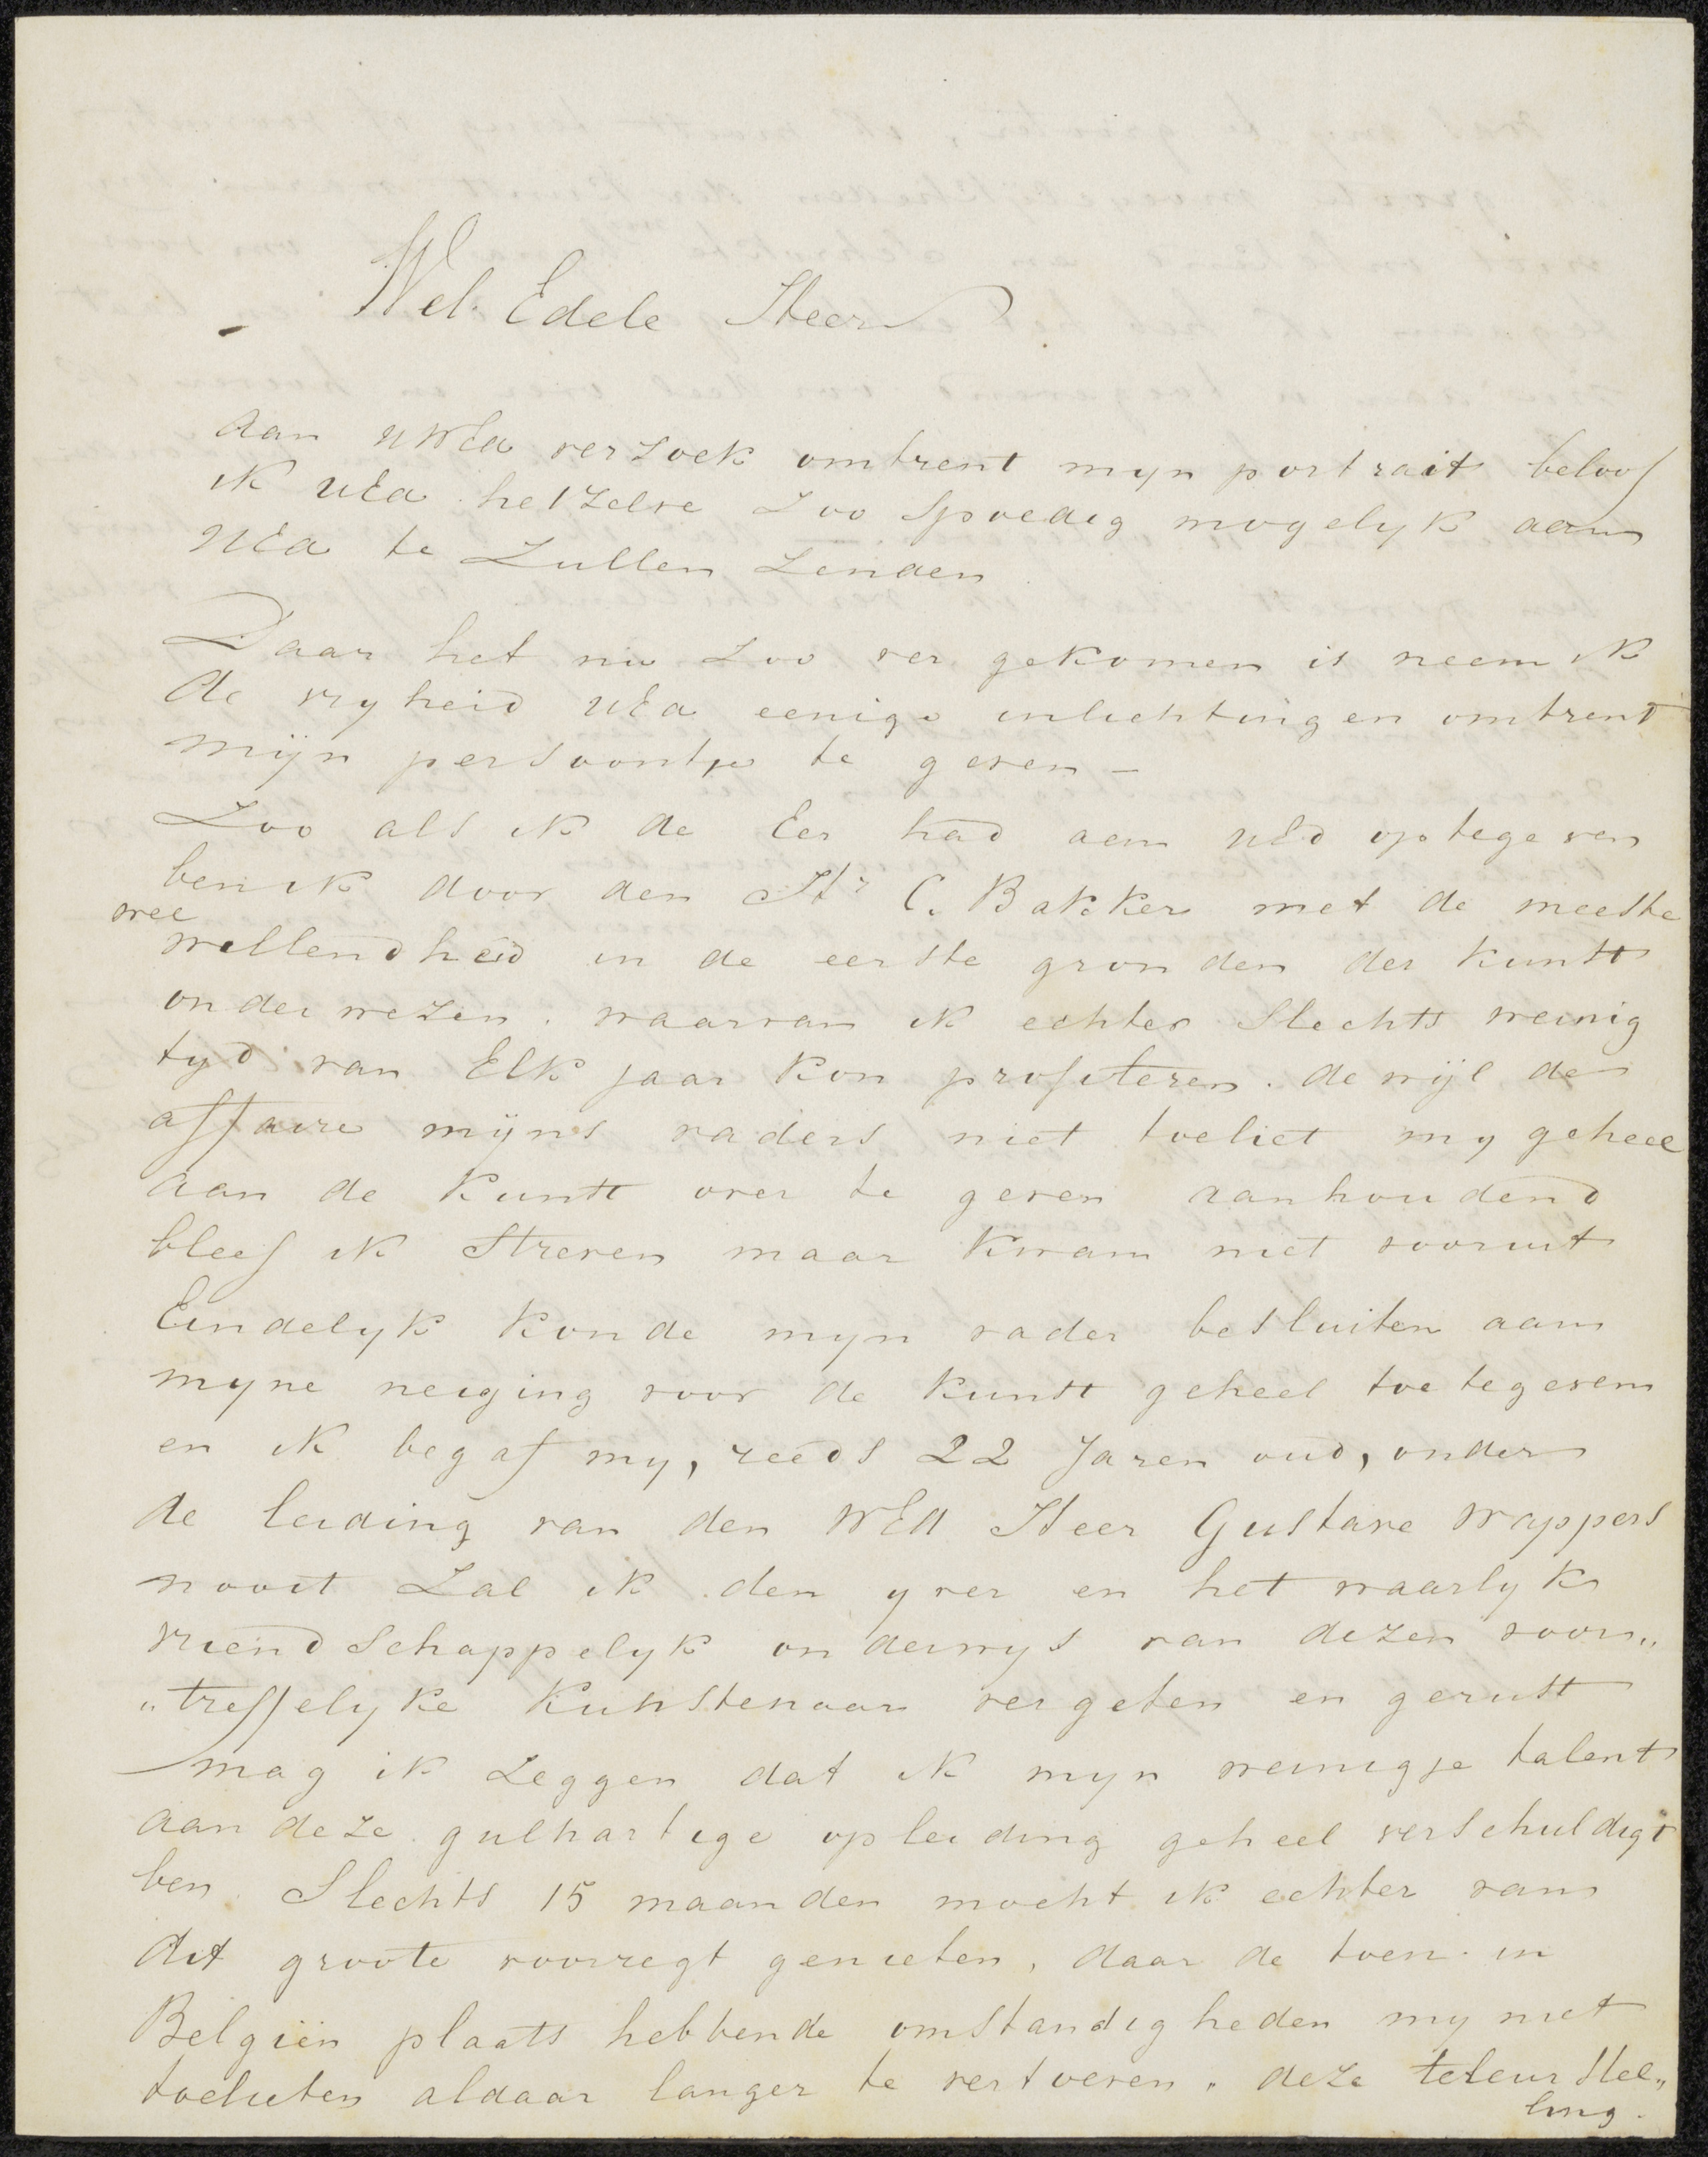 Wel Edele Heer
aan UWEd verzoek omtrent myn portrait beloof
ik UEd hetzelve zoo spoedig mogelyk aan
UEd te zullen zenden
Daar het nu zoo ver gekomen is neem ik
de vryheid UEd eenige inlichtingen omtrent
mijn persoontje te geven –
Zoo als ik de Eer had aan UEd optegeven
ben ik door den Hr C. Bakker met de meeste
wel
willendheid in de eerste gronden der kunst
onderwezen. waarvan ik echter slechts weinig
tyd van Elk jaar kon profiteren. dewijl de
affaire mijns vaders niet toeliet my geheel
aan de kunst over te geven aanhoudend
bleef ik streven maar kwam niet vooruit
Eindelyk konde myn vader besluiten aan
myne neiging voor de kunst geheel toetegeven
en ik begaf my, reeds 22 Jaren oud, onder
de leiding van den WEd Heer Gustave Wappers
nooit zal ik den yver en het waarlyk
vriendschappelyk onderwys van dezen voor„
„treffelyke kunstenaar vergeten en gerust
mag ik zeggen dat ik myn weinigje talent
aan deze gulhartige opleiding geheel verschuldigt
ben. Slechts 15 maanden mocht ik echter van
dit groote voorregt genieten, daar de toen in
Belgiën plaats hebbende omstandigheden my niet
toelieten aldaar langer te vertoeven. deze teleurstel„
ling.